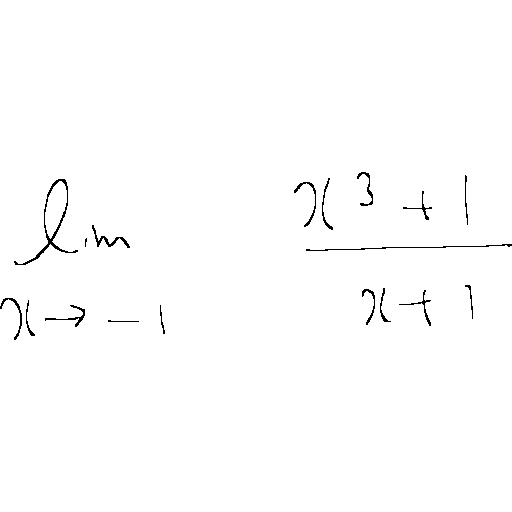 lim x³ + 1
x → − 1 x + 1